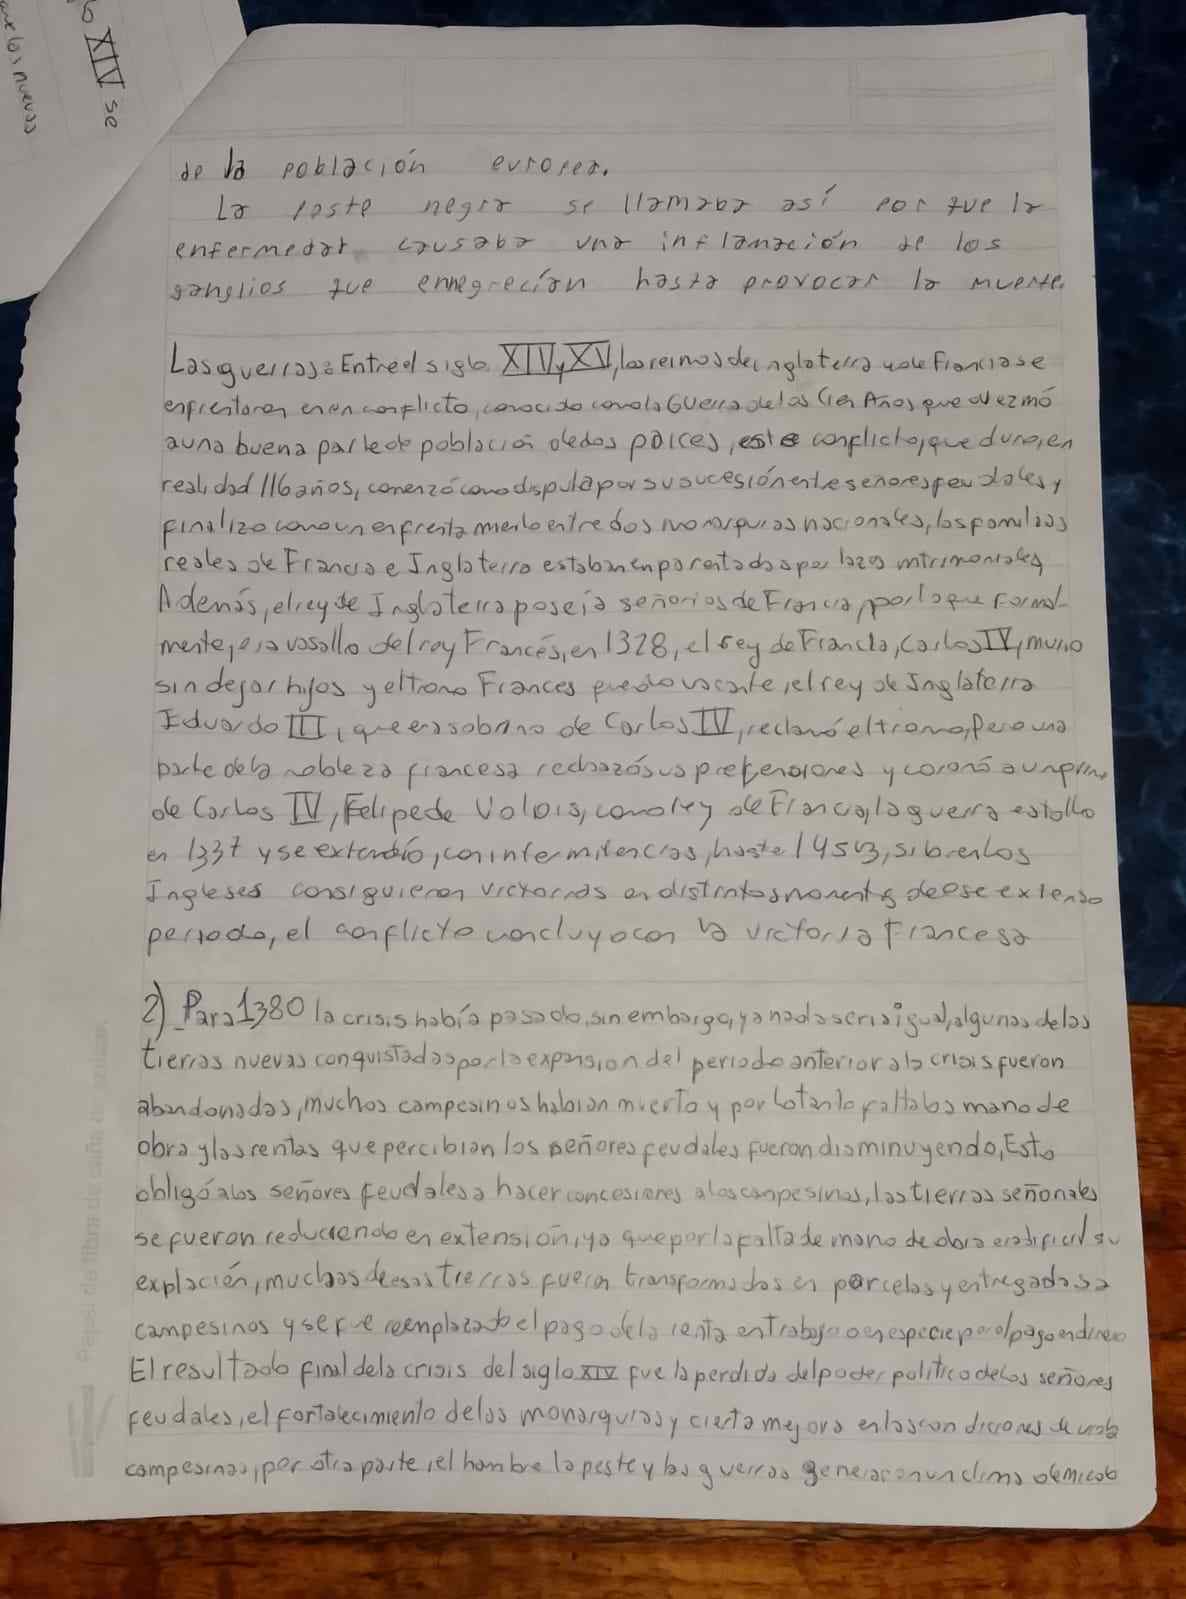 lo XIV se
que las nuevas
de la población europea.
La peste negra se llamaba así por que la
enfermedat causaba una inflamación de los
ganglios que ennegrecían hasta provocar la muerte.
Las guerras: Entre el siglo XIV y XV, los reinos de inglaterra y de Francia se
enfrentaron en en conflicto, conocido como la Guerra de los Cien Años que diezmó
a una buena parte de población de dos paices, este conflicto, que duro, en
realidad 116 años, comenzó como disputa por su sucesión ente señores feudales y
finalizo como un enfrentamiento entre dos monarquias nacionales, las familias
reales de Francia e Inglaterra estaban enparentadas por lazos mtrimoniales
Además, el rey de Inglaterra poseía señorios de Francia, por lo que formal-
mente, era vasallo del rey Francés, en 1328, el rey de Francia, Carlos IV, murio
sin dejar hijos y el trono Frances quedo vacante, el rey de Inglaterra
Eduardo III, que era sobrino de Carlos IV, reclamó el trono, Pero una
parte de la nobleza francesa rechazó sus pretensiones y coronó a un primo
de Carlos IV, Felipe de Valois, como rey de Francia, la guerra estallo
en 1337 y se extendío, con intermitencias, hasta 1453, si bien los
Ingleses consiguieron victorias en distintos momentos de ese extenso
periodo, el conflicto concluyo con la victoria Francesa
2) Para 1380 la crisis había pasado, sin embargo, ya nada seria igual, algunas de las
tierras nuevas conquistadas por la expansion del periodo anterior a la crisis fueron
abandonadas, muchos campesinos habian muerto y por lo tanto faltaba mano de
obra y las rentas que percibian los señores feudales fueron disminuyendo, Esto
obligó a los señores feudales a hacer concesiones a los campesinos, las tierras señoriales
se fueron reduciendo en extensión, ya que por la falta de mano de obra era dificil su
explación, muchas de esas tierras fueron transformadas en parcelas y entregadas a
campesinos y se fue reemplazado el pago de la renta en trabajo o en especie por el pago en dinero
El resultado final de la crisis del siglo XIV fue la perdida del poder politico de los señores
feudales, el fortalecimiento de las monarquias y cierta mejora en las condiciones de vida
campesinas, por otra parte, el hambre la peste y las guerras generaron un clima de miedo